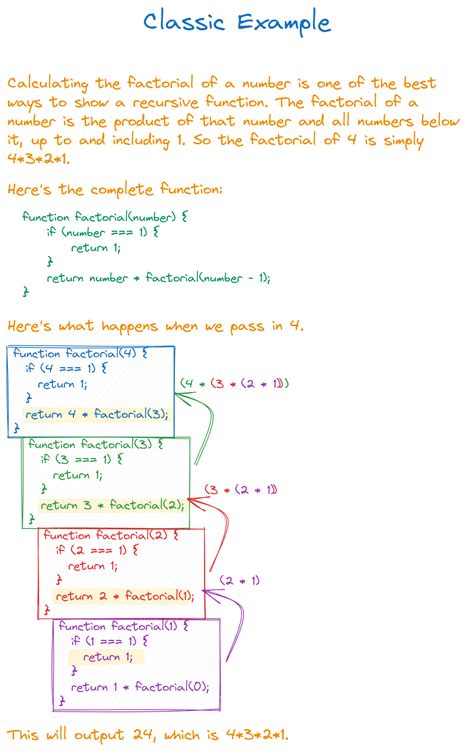 Classic Example
Calculating the factorial of a number is one of the best
ways to show a recursive function. The factorial of a
number is the product of that number and all numbers below
it, up to and including 1. So the factorial of 4 is simply
4*3*2*1.
Here's the complete function:
function factorial(number) {
if (number === 1) {
return 1;
}
return number * factorial(number - 1);
}
Here's what happens when we pass in 4.
function factorial(4) {
if (4 === 1) {
return 1;
}
return 4 * factorial(3);
}
(4 * (3 * (2 * 1)))
function factorial(3) {
if (3 === 1) {
return 1;
}
return 3 * factorial(2);
}
(3 * (2 * 1))
function factorial(2) {
if (2 === 1) {
return 1;
}
return 2 * factorial(1);
}
(2 * 1)
function factorial(1) {
if (1 === 1) {
return 1;
}
return 1 * factorial(0);
}
This will output 24, which is 4*3*2*1.